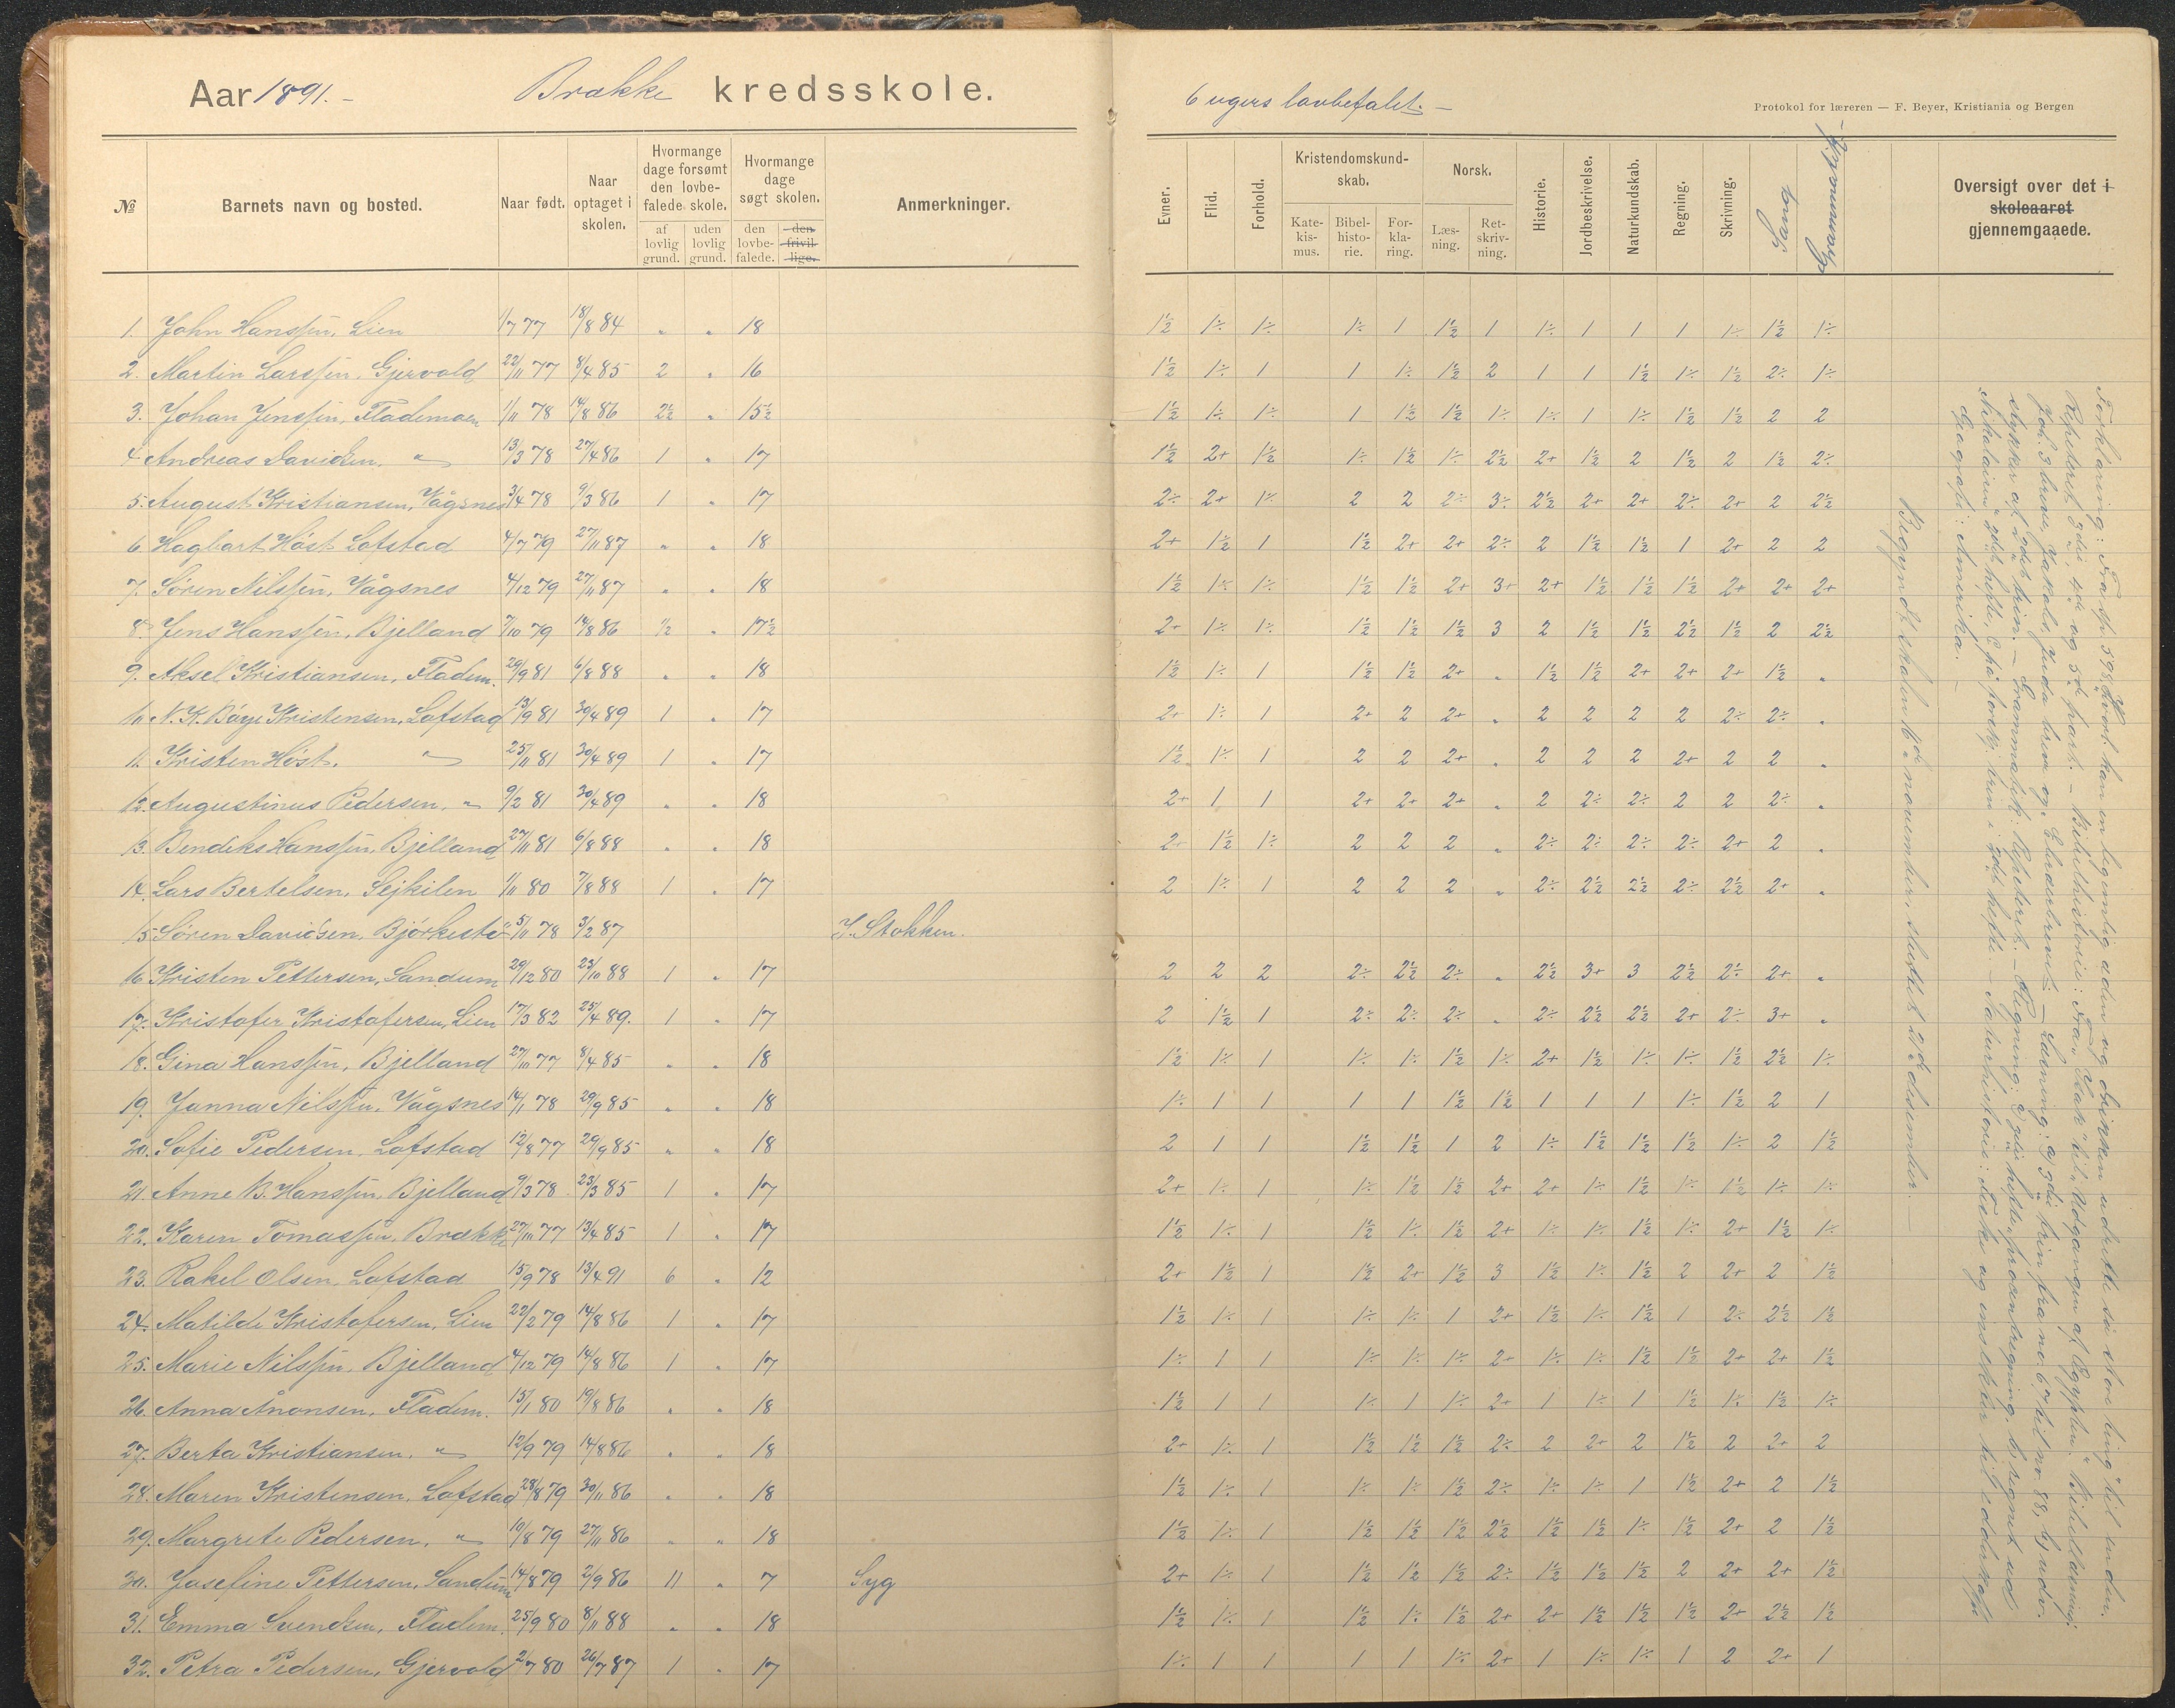 Aar 1891.- Brække kredsskole.
6 ugers lovbefalet.-
Protokol for læreren — F. Beyer, Kristiania og Bergen
№ Barnets navn og bosted. Naar født. Naar optaget i skolen. Hvormange dage forsømt den lovbefalede skole. af lovlig grund. uden lovlig grund. Hvormange dage søgt skolen. den lovbefalede. den frivillige. Anmerkninger.
Evner. Flid. Forhold. Kristendomskundskab. Katekismus. Bibelhistorie. Forklaring. Norsk. Læsning. Retskrivning. Historie. Jordbeskrivelse. Naturkundskab. Regning. Skrivning. Sang Grammatik. Oversigt over det i skoleaaret gjennemgaaede.
1. John Hanssen, Lien 1/7 77 18/8 84 " " 18 1½ 1÷ 1÷ 1÷ 1 1½ 1 1÷ 1 1 1 1÷ 1½ 1÷
2. Martin Larssen, Gjervold 22/11 77 8/4 85 2 " 16 1½ 1÷ 1 1 1÷ 1½ 2 1 1 1½ 1÷ 1½ 2÷ 1÷
3. Johan Jenssen, Flademoen 1/11 78 14/8 86 2½ " 15½ 1½ 1÷ 1÷ 1 1½ 1½ 1÷ 1÷ 1 1÷ 1½ 1½ 2 2
4. Andreas Davidsen, " 13/3 78 27/4 86 1 " 17 1½ 2+ 1½ 1÷ 1½ 1÷ 2½ 2+ 1½ 2 1½ 2 1½ 2÷
5. August Kristiansen, Vågsnes 3/4 78 9/3 86 1 " 17 2÷ 2+ 1÷ 2 2 2÷ 3÷ 2½ 2+ 2+ 2÷ 2+ 2 2½
6. Hagbart Høst Lofstad 4/7 79 27/11 87 " " 18 2+ 1½ 1 1½ 2+ 2+ 2÷ 2 1½ 1½ 1 2+ 2 2
7. Søren Nilssen, Vågsnes 4/12 79 27/11 87 " " 18 1½ 1÷ 1÷ 1½ 1½ 2+ 3+ 2+ 1½ 1½ 1½ 2+ 2+ 2+
8. Jens Hanssen, Bjelland 7/10 79 14/8 86 ½ " 17½ 2+ 1÷ 1÷ 1½ 1½ 1½ 3 2 1½ 1½ 2½ 1½ 2 2½
9. Aksel Kristiansen, Fladem. 29/9 81 6/8 88 " " 18 1½ 1÷ 1 1½ 1½ 2+ " 1½ 1½ 2+ 2+ 2+ 1½ "
10. N. K. Bøye Kristensen, Lofstad 13/9 81 30/4 89 1 " 17 2+ 1÷ 1 2+ 2 2+ " 2 2 2 2 2÷ 2÷ "
11. Kristen Høst, " 25/11 81 30/4 89 1 " 17 1½ 1÷ 1 2 2 2+ " 2 2 2 2+ 2 2 "
12. Augustinus Pedersen, " 9/2 81 30/4 89 " " 18 2+ 1 1 2+ 2+ 2+ " 2 2÷ 2÷ 2 2 2÷ "
13. Bendiks Hanssen, Bjelland 27/11 81 6/8 88 " " 18 2+ 1½ 1÷ 2 2 2 " 2÷ 2÷ 2÷ 2÷ 2+ 2 "
14. Lars Bertelsen, Sejkilen 1/11 80 7/8 88 1 " 17 2 1÷ 1 2 2 2 " 2÷ 2½ 2½ 2÷ 2½ 2+ "
15. Søren Davidsen, Bjørkestø 5/11 78 3/2 87 I Stokken.
16. Kristen Pettersen, Sandum 29/12 80 23/10 88 1 " 17 2 2 2 2÷ 2½ 2÷ " 2½ 3+ 3 2½ 2÷ 2+ "
17. Kristofer Kristofersen, Lien 17/3 82 25/4 89. 1 " 17 2 1½ 1 2÷ 2÷ 2÷ " 2÷ 2½ 2½ 2+ 2÷ 3+ "
18. Gina Hanssen, Bjelland 27/10 77 8/4 85 " " 18 1½ 1÷ 1 1÷ 1÷ 1½ 1÷ 2+ 1½ 1÷ 1÷ 1½ 2½ 1÷
19. Janna Nilssen, Vågsnes 14/1 78 29/9 85 " " 18 1÷ 1 1 1 1 1½ 1½ 1 1 1 1÷ 1½ 2 1
20. Sofie Pedersen, Lofstad 12/8 77 29/9 85 " " 18 2 1 1 1½ 1½ 1 2 1÷ 1½ 1½ 1½ 1÷ 2 1½
21. Anne B. Hanssen, Bjelland 9/3 78 23/3 85 1 " 17 2+ 1÷ 1 1÷ 1½ 1½ 2+ 2+ 1÷ 1½ 1÷ 1½ 1÷ 1÷
22. Karen Tomassen, Brække 27/10 77 13/4 85 1 " 17 1½ 1÷ 1 1½ 1÷ 1½ 2+ 1÷ 1÷ 1½ 1÷ 2+ 1½ 1÷
23. Rakel Olsen, Lofstad 15/9 78 13/4 91 6 " 12 2+ 1½ 1 1½ 2+ 1½ 3 1½ 1÷ 1½ 2 2+ 2 1½
24. Matilde Kristofersen, Lien 22/2 79 14/8 86 1 " 17 1½ 1÷ 1 1÷ 1÷ 1 2+ 1½ 1÷ 1½ 1 2÷ 2½ 1½
25. Marie Nilssen, Bjelland 4/12 79 14/8 86 1 " 17 1÷ 1 1 1÷ 1÷ 1÷ 2+ 1÷ 1÷ 1½ 1½ 2+ 2+ 1½
26. Anna Ånonsen, Fladem. 15/1 80 19/8 86 " " 18 1½ 1 1 1÷ 1 1÷ 2+ 1 1÷ 1 1½ 1÷ 1½ 1÷
27. Berta Kristiansen, " 12/9 79 14/8 86 " " 18 2+ 1÷ 1 1½ 1½ 1½ 2÷ 2 2+ 2 1½ 2 2+ 2
28. Maren Kristensen, Lofstad 28/8 79 30/11 86 " " 18 1½ 1÷ 1 1÷ 1÷ 1½ 2÷ 1÷ 1÷ 1 1½ 2+ 2 1½
29. Margrete Pedersen, " 10/8 79 27/11 86 " " 18 1½ 1÷ 1 1½ 1½ 1½ 2½ 1½ 1½ 1÷ 1½ 2+ 2 1½
30. Josefine Pettersen, Sandum 14/8 79 2/9 86 11 " 7 Syg 2+ 1÷ 1 1½ 1½ 1½ 2÷ 1½ 1½ 1½ 2 2+ 2+ 1½
31. Emma Svendsen, Fladem. 25/9 80 8/11 88 " " 18 1½ 1÷ 1 1½ 1÷ 1½ 2+ 2+ 1½ 1½ 1½ 2+ 2½ 1½
32. Petra Pedersen, Gjervold 2/7 80 26/7 87 1 " 17 1÷ 1 1 1 1 1÷ 2+ 1 1÷ 1÷ 1 2 2+ 1
Forklaring: Fra sp. 598 "Hvort. kan en legemlig æden og drikken udrette så store ting" til enden.
Repeteret 3die, 4de og 5te part. - Bibelhistorie: Fra "Isak" til "Udgangen af Egypten." Bibellæsning:
Joh. 3 breve, Jakobs, Judæ brev og Ebræerbrevet. - Læsning: af 3die trin fra no. 67 til no. 88, 4 udv.
stykker af 2det trin. - Grammatik: Repeteret. - Regning: 3die hefte, procentregning. 6 regnet ud
Nikolaisens 2det hefte, 6 på forskj. trin i 2det hefte. - Naturhistorie: Fiske og insekter til edderkopp
Geografi: Amerika. -
Begyndt skolen 16de november, sluttet 21de desember. -